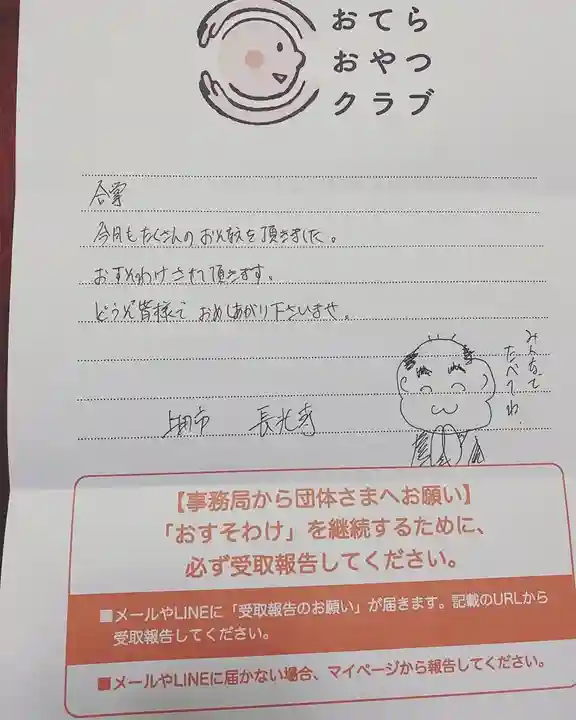 おてら
おやつ
クラブ
合掌
今月もたくさんのお供えを頂きました。
おすそわけさせて頂きます。
どうぞ皆様で おめしあがり下さいませ。
みんなで
たべてね
上田市 長光寺
【事務局から団体さまへお願い】
「おすそわけ」を継続するために、
必ず受取報告してください。
■メールやLINEに「受取報告のお願い」が届きます。記載のURLから
受取報告してください。
■メールやLINEに届かない場合、マイページから報告してください。